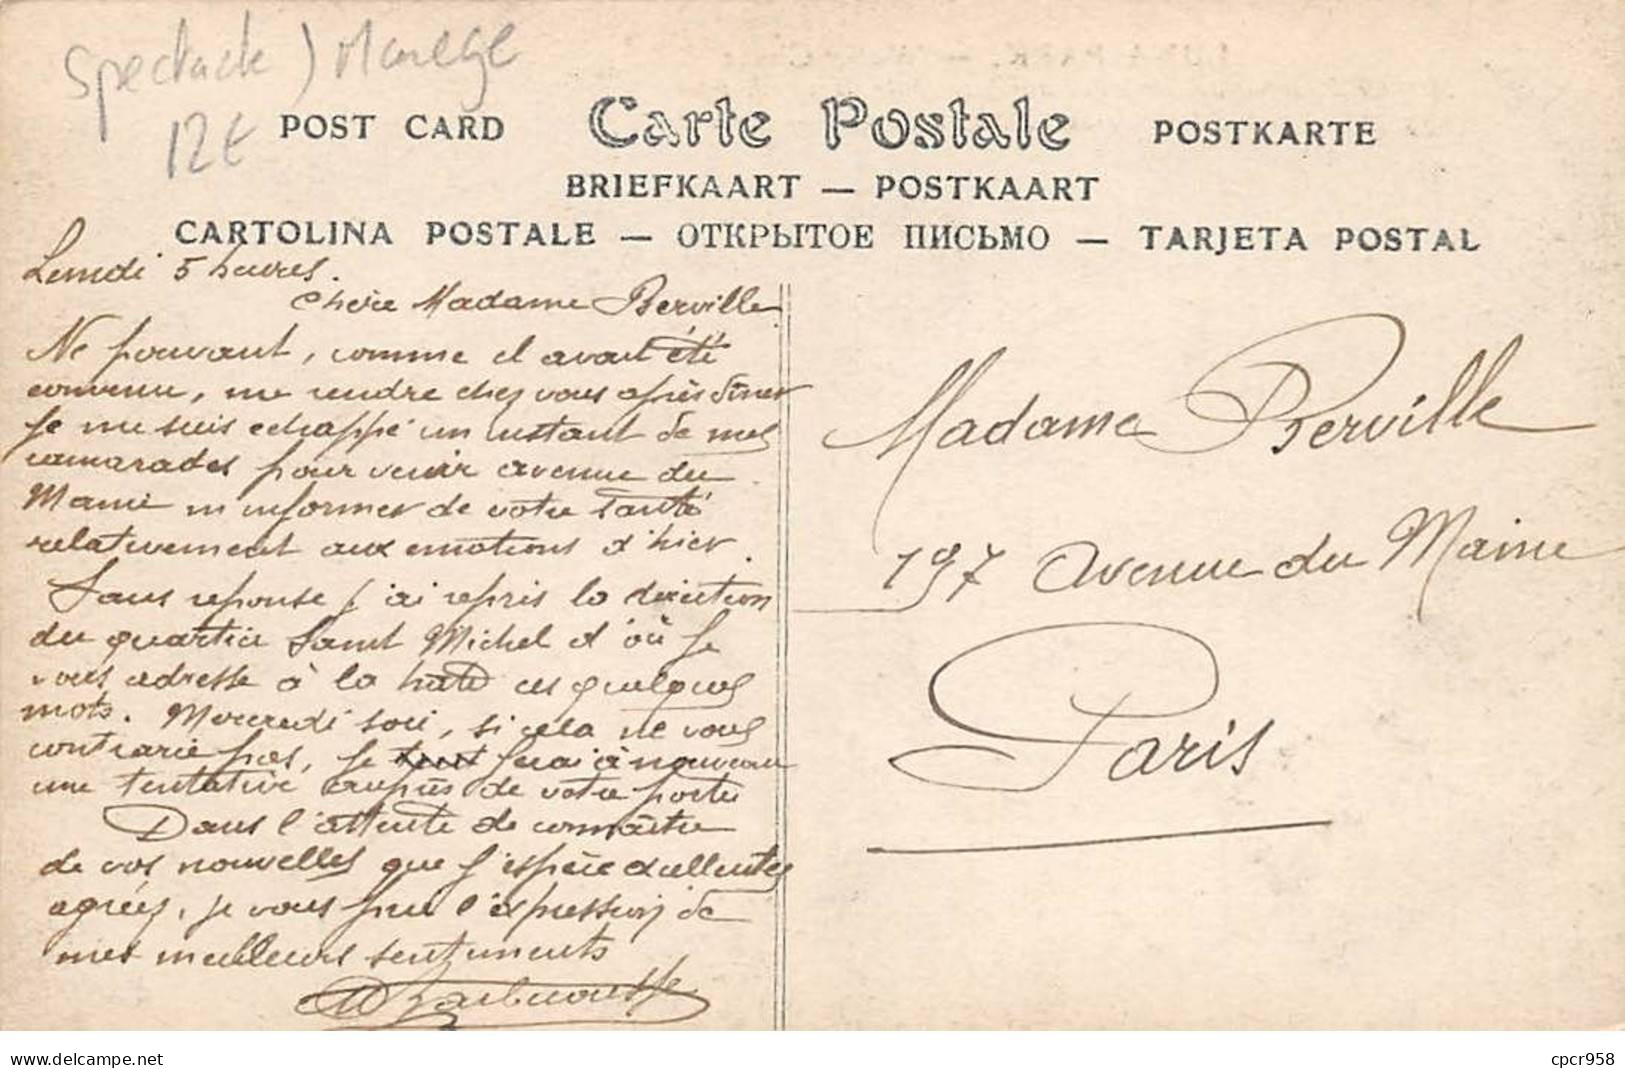 Spectacle) Manège
12€
POST CARD Carte Postale POSTKARTE
BRIEFKAART — POSTKAART
CARTOLINA POSTALE — ОТКРЫТОЕ ПИСЬМО — TARJETA POSTAL
Lundi 5 heures.
Chère Madame Berville
Ne pouvant, comme il avait été
convenu, me rendre chez vous après dîner
je me suis echappé un instant de mes
camarades pour venir avenue du
Maine m'informer de votre santé
relativement aux emotions d'hier.
Sans reponse j'ai repris la direction
du quartier Saint Michel d'où je
vous adresse à la hate ces quelques
mots. Mercredi soir, si cela ne vous
contrarie pas, je ferai à nouveau
une tentative auprès de votre porte
Dans l'attente de connaître
de vos nouvelles que j'espère excellentes
agréez, je vous prie l'expression de
mes meilleurs sentiments
Madame Berville
197 Avenue du Maine
Paris
cpcr958
www.delcampe.net